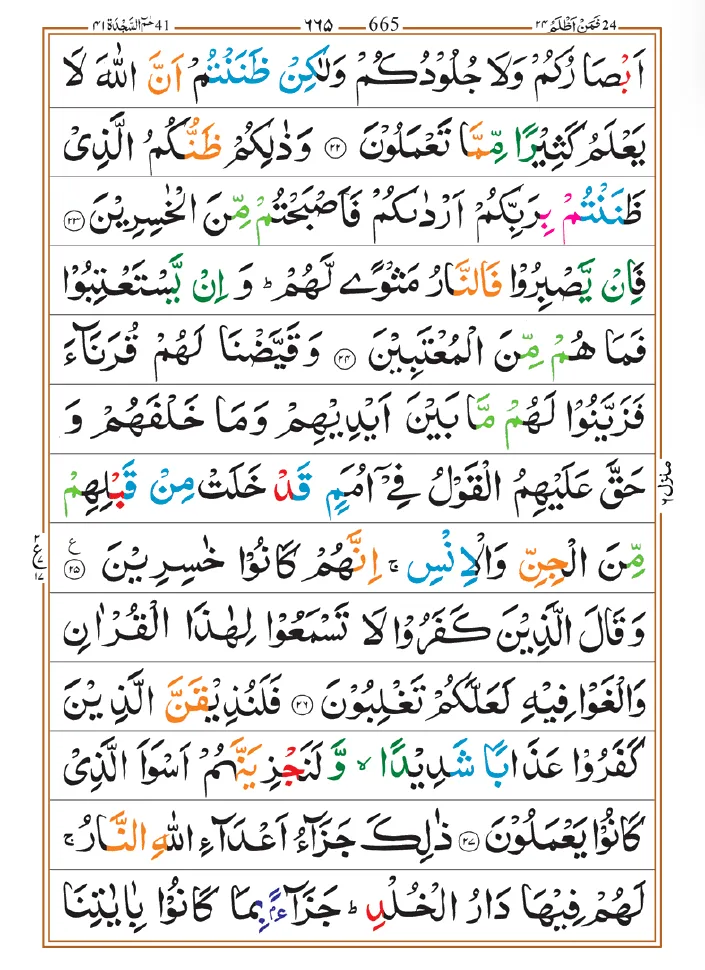 24 فَمَنْ اَظْلَمُ ٢٤ 665 ٦٦٥ 41 حٰمٓ السَّجْدَة ٤١
اَبْصَارُكُمْ وَلَا جُلُوْدُكُمْ وَلٰكِنْ ظَنَنْتُمْ اَنَّ اللّٰهَ لَا
يَعْلَمُ كَثِيْرًا مِّمَّا تَعْمَلُوْنَ ۝٢٢ وَذٰلِكُمْ ظَنُّكُمُ الَّذِىْ
ظَنَنْتُمْ بِرَبِّكُمْ اَرْدٰىكُمْ فَاَصْبَحْتُمْ مِّنَ الْخٰسِرِيْنَ ۝٢٣
فَاِنْ يَّصْبِرُوْا فَالنَّارُ مَثْوًى لَّهُمْ ؕ وَ اِنْ يَّسْتَعْتِبُوْا
فَمَا هُمْ مِّنَ الْمُعْتَبِيْنَ ۝٢٤ وَ قَيَّضْنَا لَهُمْ قُرَنَآءَ
فَزَيَّنُوْا لَهُمْ مَّا بَيْنَ اَيْدِيْهِمْ وَمَا خَلْفَهُمْ وَ
حَقَّ عَلَيْهِمُ الْقَوْلُ فِىْۤ اُمَمٍ قَدْ خَلَتْ مِنْ قَبْلِهِمْ
مِّنَ الْجِنِّ وَالْاِنْسِ ۚ اِنَّهُمْ كَانُوْا خٰسِرِيْنَ ۝٢٥ ع
وَ قَالَ الَّذِيْنَ كَفَرُوْا لَا تَسْمَعُوْا لِهٰذَا الْقُرْاٰنِ
وَالْغَوْا فِيْهِ لَعَلَّكُمْ تَغْلِبُوْنَ ۝٢٦ فَلَنُذِيْقَنَّ الَّذِيْنَ
كَفَرُوْا عَذَابًا شَدِيْدًا ۙ وَّ لَنَجْزِيَنَّهُمْ اَسْوَاَ الَّذِىْ
كَانُوْا يَعْمَلُوْنَ ۝٢٧ ذٰلِكَ جَزَآءُ اَعْدَآءِ اللّٰهِ النَّارُ ۚ
لَهُمْ فِيْهَا دَارُ الْخُلْدِ ؕ جَزَآءًۢ بِمَا كَانُوْا بِاٰيٰتِنَا
منزل ٦